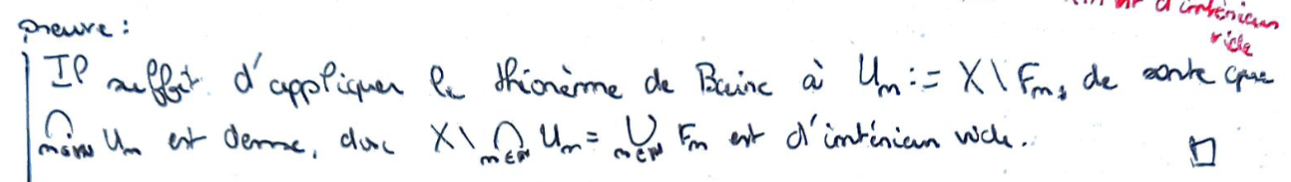 d'intérieur
vide
preuve :
Il suffit d'appliquer le théorème de Baire à Uₘ := X \ Fₘ, de sorte que
⋂ₘ∈ℕ Uₘ est dense, donc X \ ⋂ₘ∈ℕ Uₘ = ⋃ₘ∈ℕ Fₘ est d'intérieur vide. □